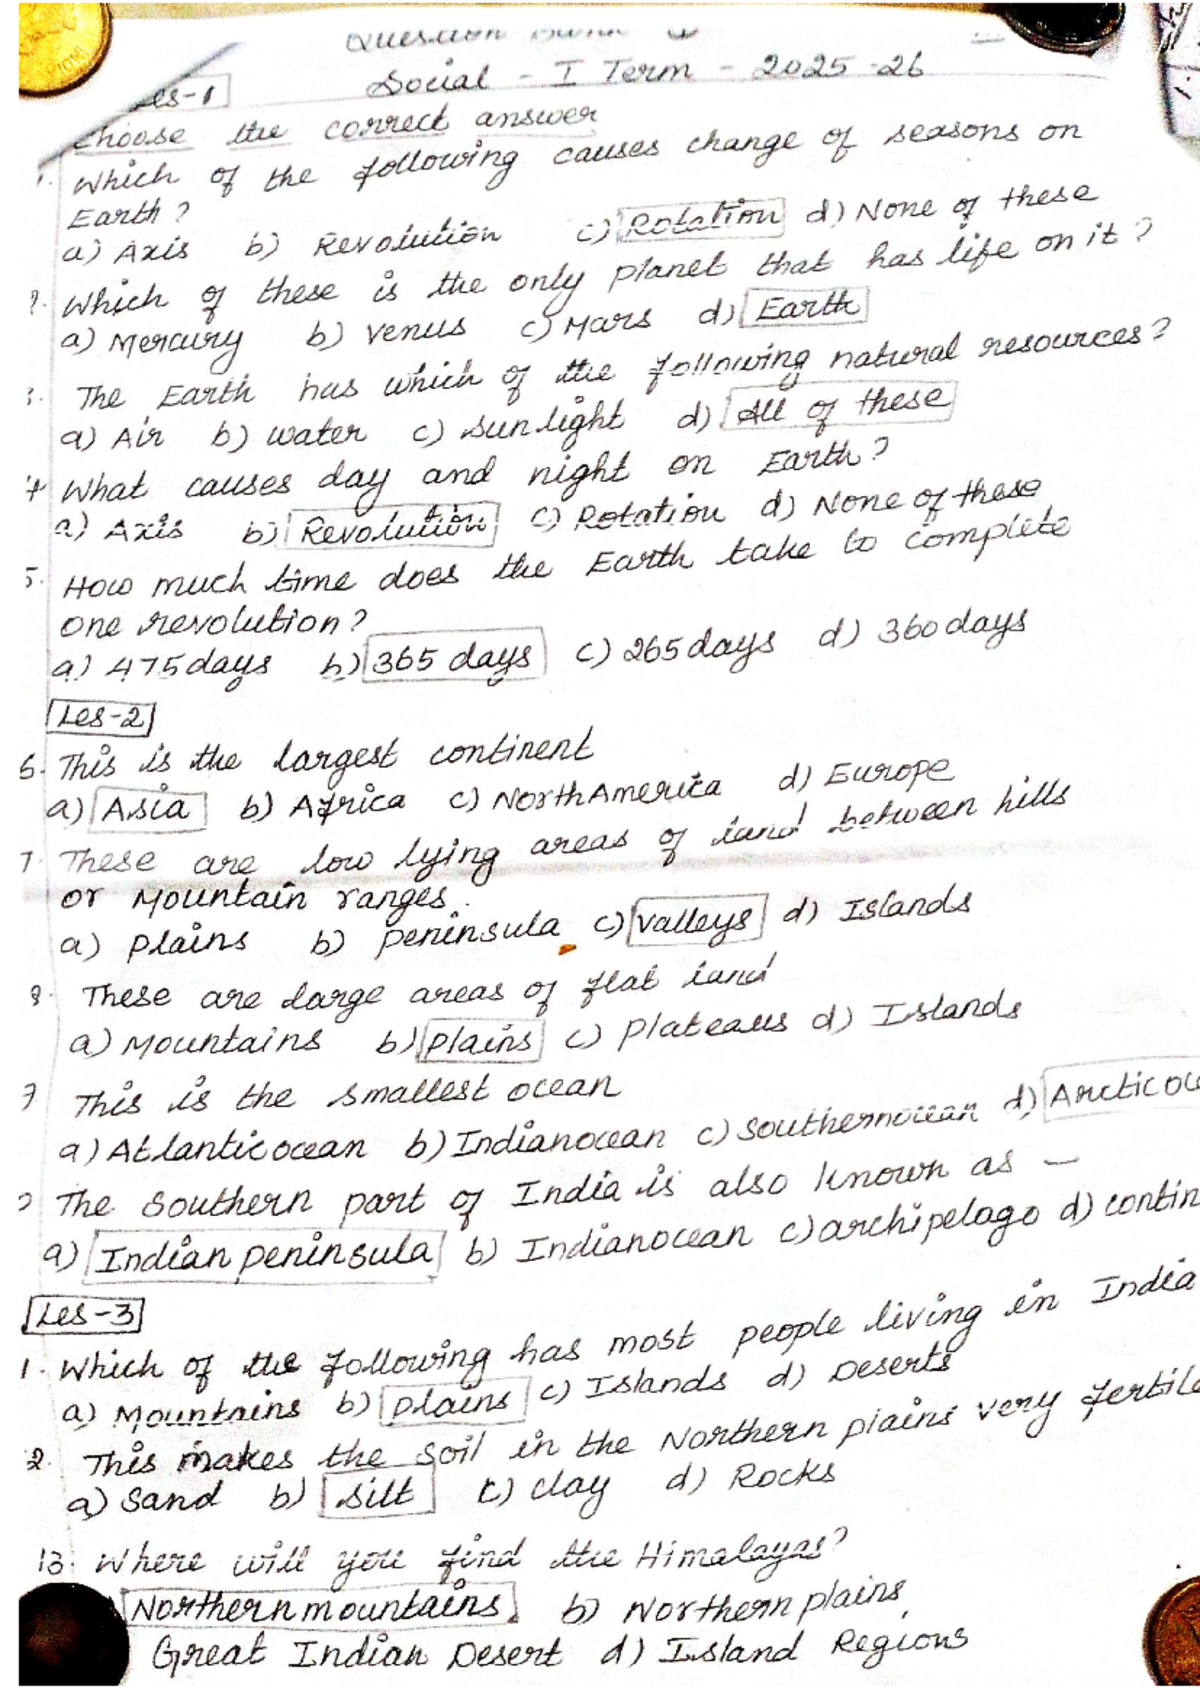 Question Bank
Social - I Term - 2025-26
Les-1
Choose the correct answer
1. Which of the following causes change of seasons on
Earth?
a) Axis b) Revolution c) Rotation d) None of these
2. Which of these is the only planet that has life on it?
a) Mercury b) Venus c) Mars d) Earth
3. The Earth has which of the following natural resources?
a) Air b) water c) sunlight d) All of these
4 What causes day and night on Earth?
a) Axis b) Revolution c) Rotation d) None of these
5. How much time does the Earth take to complete
one revolution?
a) 475 days b) 365 days c) 265 days d) 360 days
Les-2
6. This is the largest continent
a) Asia b) Africa c) North America d) Europe
7. These are low lying areas of land between hills
or Mountain ranges.
a) plains b) peninsula c) valleys d) Islands
8. These are large areas of flat land
a) Mountains b) plains c) plateaus d) Islands
9 This is the smallest ocean
a) Atlantic ocean b) Indian ocean c) Southern ocean d) Arctic oc
0 The Southern part of India is also known as —
a) Indian peninsula b) Indian ocean c) archipelago d) contin
Les-3
1. Which of the following has most people living in India
a) Mountains b) plains c) Islands d) Deserts
2. This makes the soil in the Northern plains very fertile
a) Sand b) silt c) clay d) Rocks
13. Where will you find the Himalayas?
Northern mountains b) Northern plains
Great Indian Desert d) Island Regions